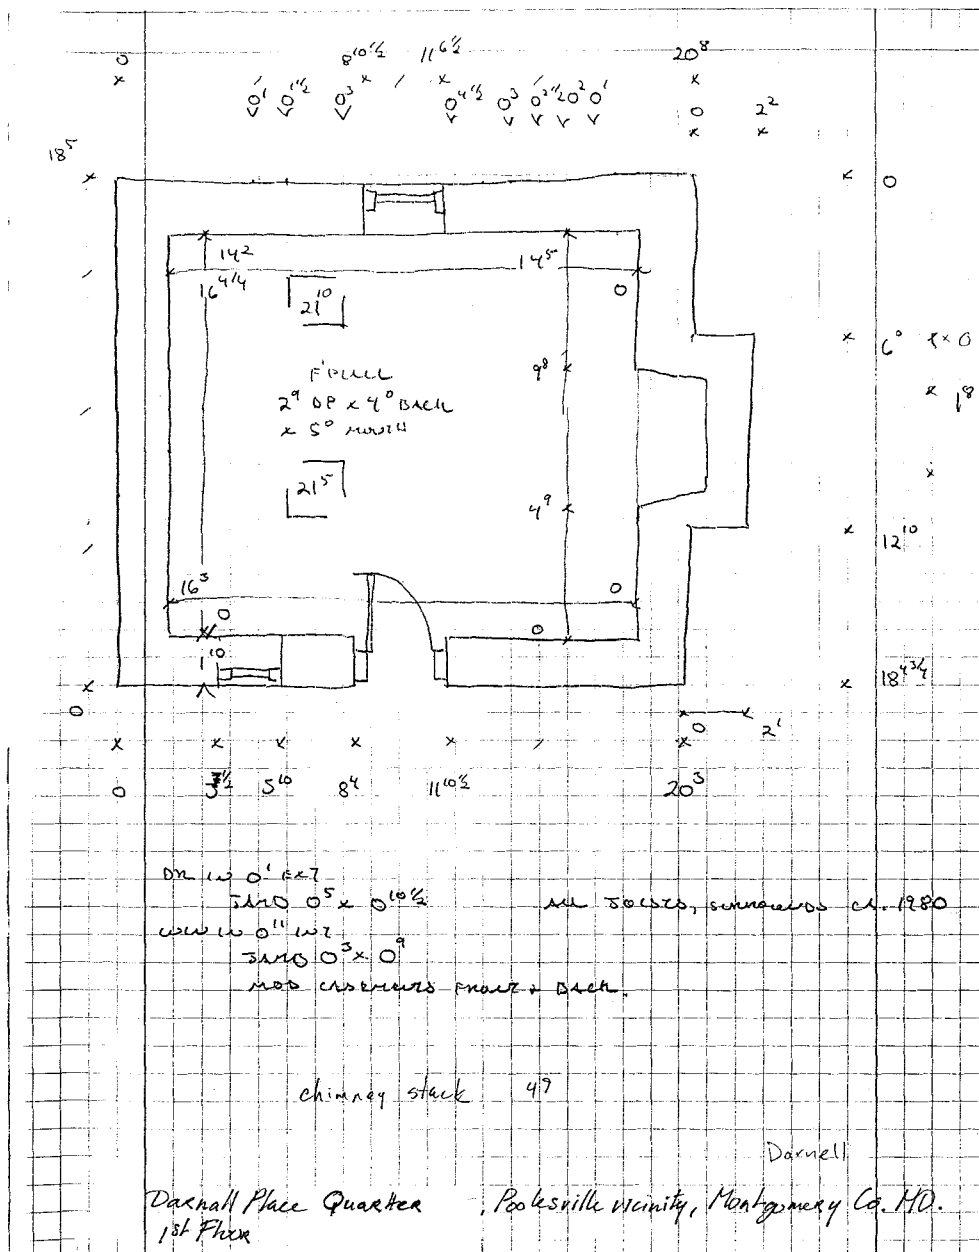 0 8 10½ 11 6½ 20 8
0 1 0 1½ 0 3 0 4½ 0 3 0 2½ 0 2 0 1 0 2 2
18 5 0
14 2 14 5
16 4¼ 0
21 10
6 0 0
F'PLACE 9 8
2 9 DP x 4 0 BACK 1 8
x 5 0 MOUTH
21 5
4 9
12 10
16 3 0
0 0
1 10 18 4¾
0 0 2 1
0 5 10 8 4 11 10½ 20 3
DR IN 0 1 EXT
JAMB 0 5 x 0 10½ ALL JOISTS, SURROUNDS CA. 1980
WIN IN 0 11 INT
JAMB 0 3 x 0 9
MOD CASEMENTS FRONT + BACK.
chimney stack 49
Darnell
Darnall Place Quarter , Poolesville vicinity, Montgomery Co. MD.
1st Floor